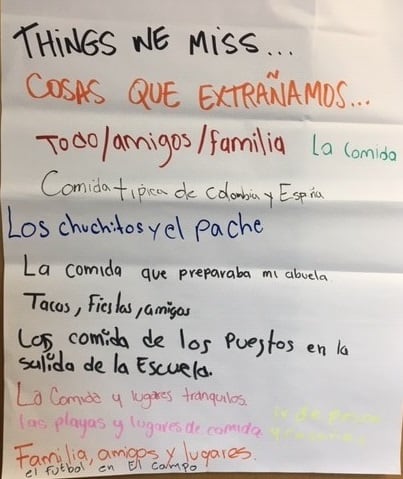 THINGS WE MISS...
COSAS QUE EXTRAÑAMOS...
TODO/amigos/familia
La Comida
Comida típica de Colombia y España
Los chuchitos y el Pache
La comida que preparaba mi abuela
Tacos, Fiestas, amigos
Los comida de los Puestos en la
salida de la Escuela.
La Comida y lugares tranquilos.
las playas y lugares de comida
Familia, amigos y lugares.
el futbol en El Campo